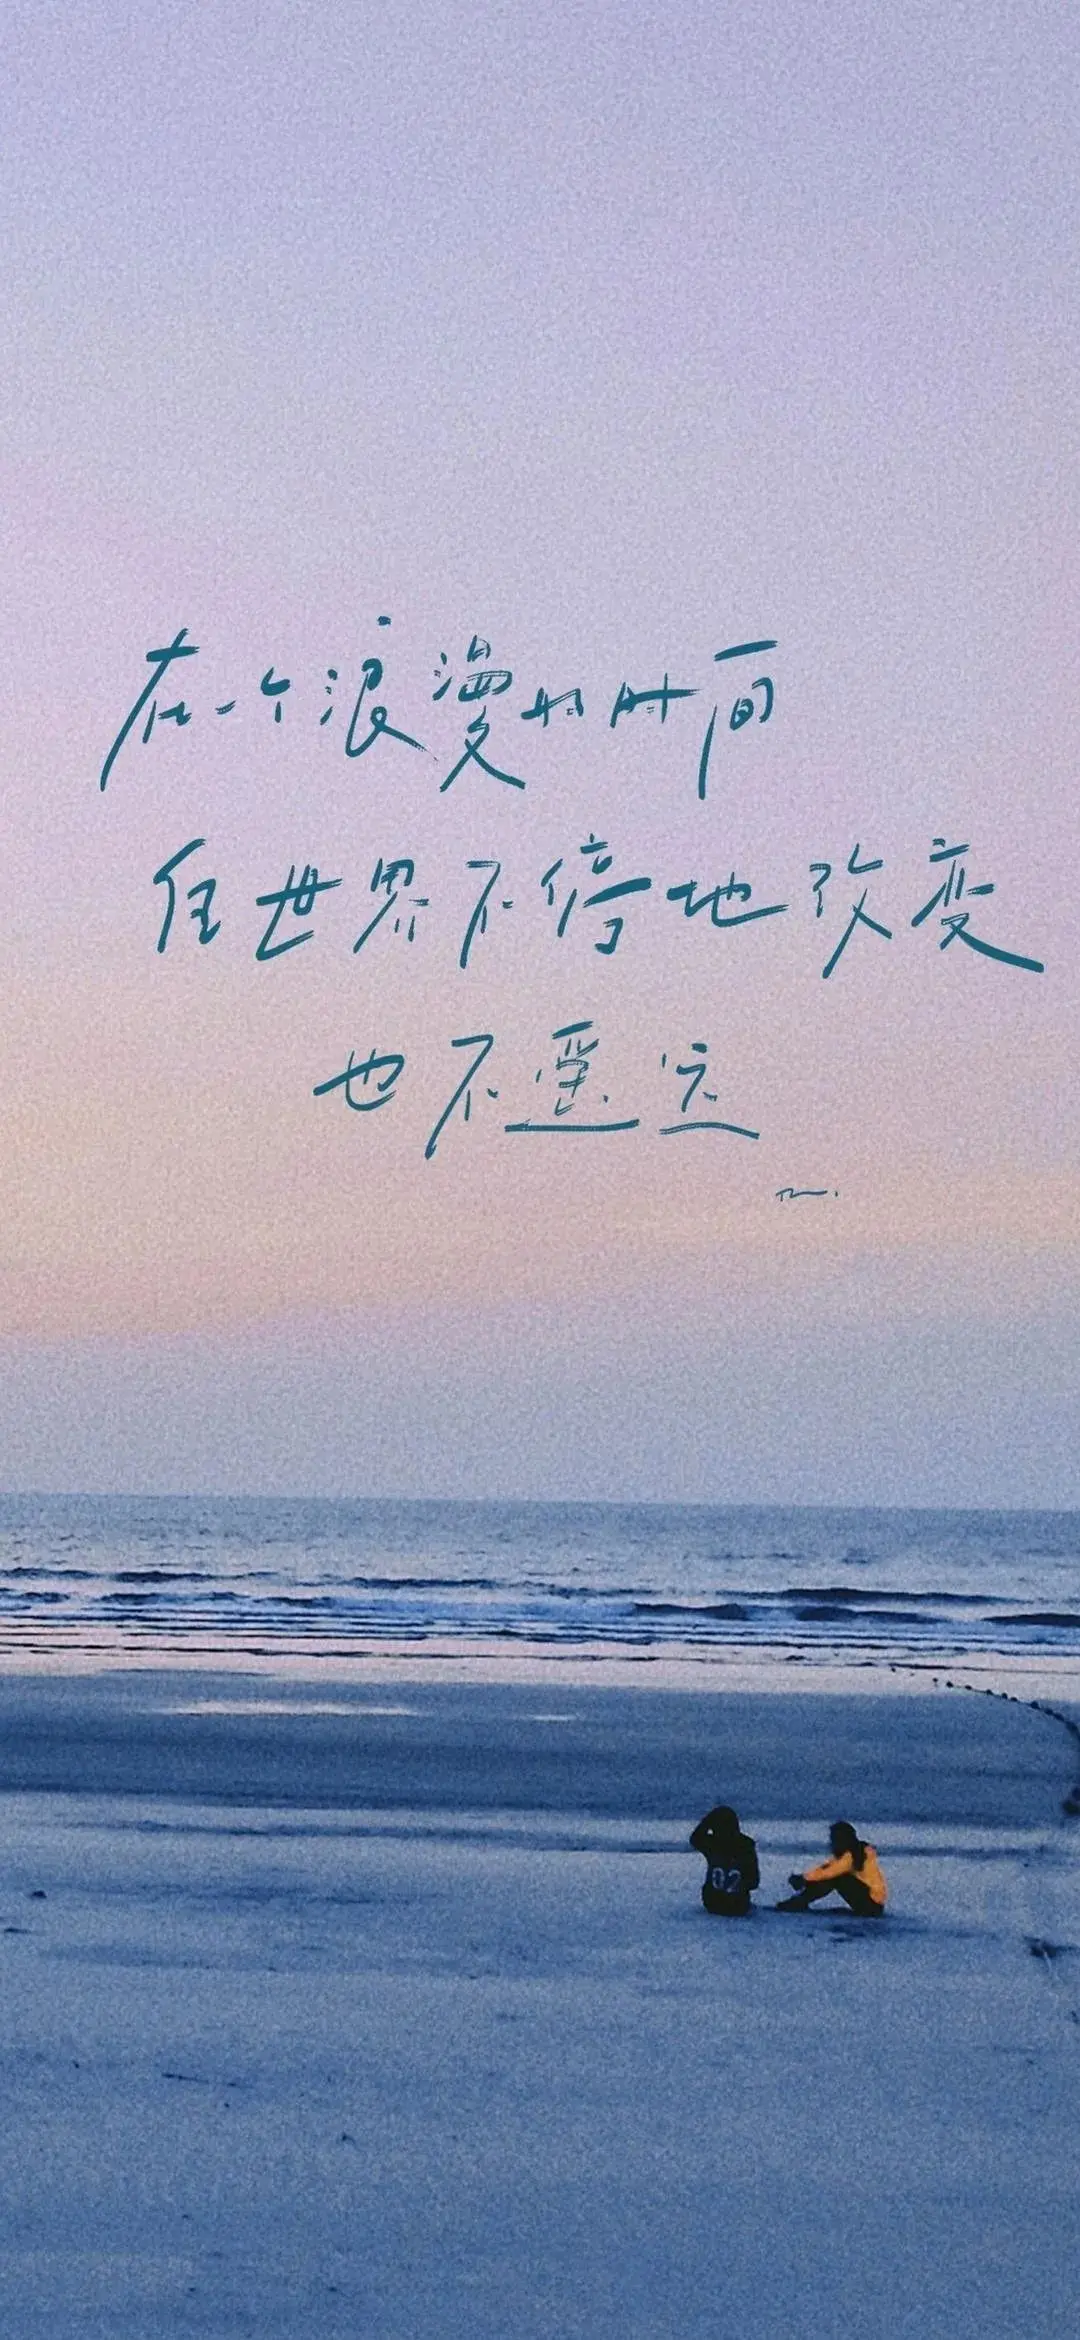 在一个浪漫的时间
任世界不停地改变
也不遥远
02